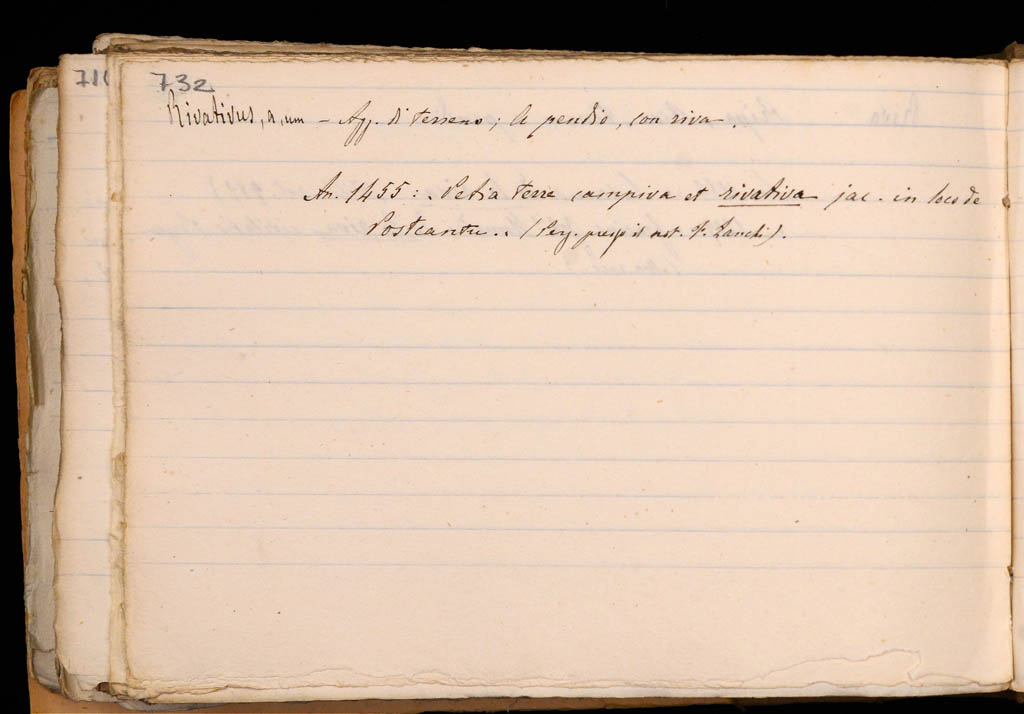 71
732
Rivativus, a, um - Agg. di terreno; a pendio, con riva.
An. 1455: Petia terre campiva et rivativa jac. in loco de
Postcantu.. (Perg. presso il not. F. Zanchi).